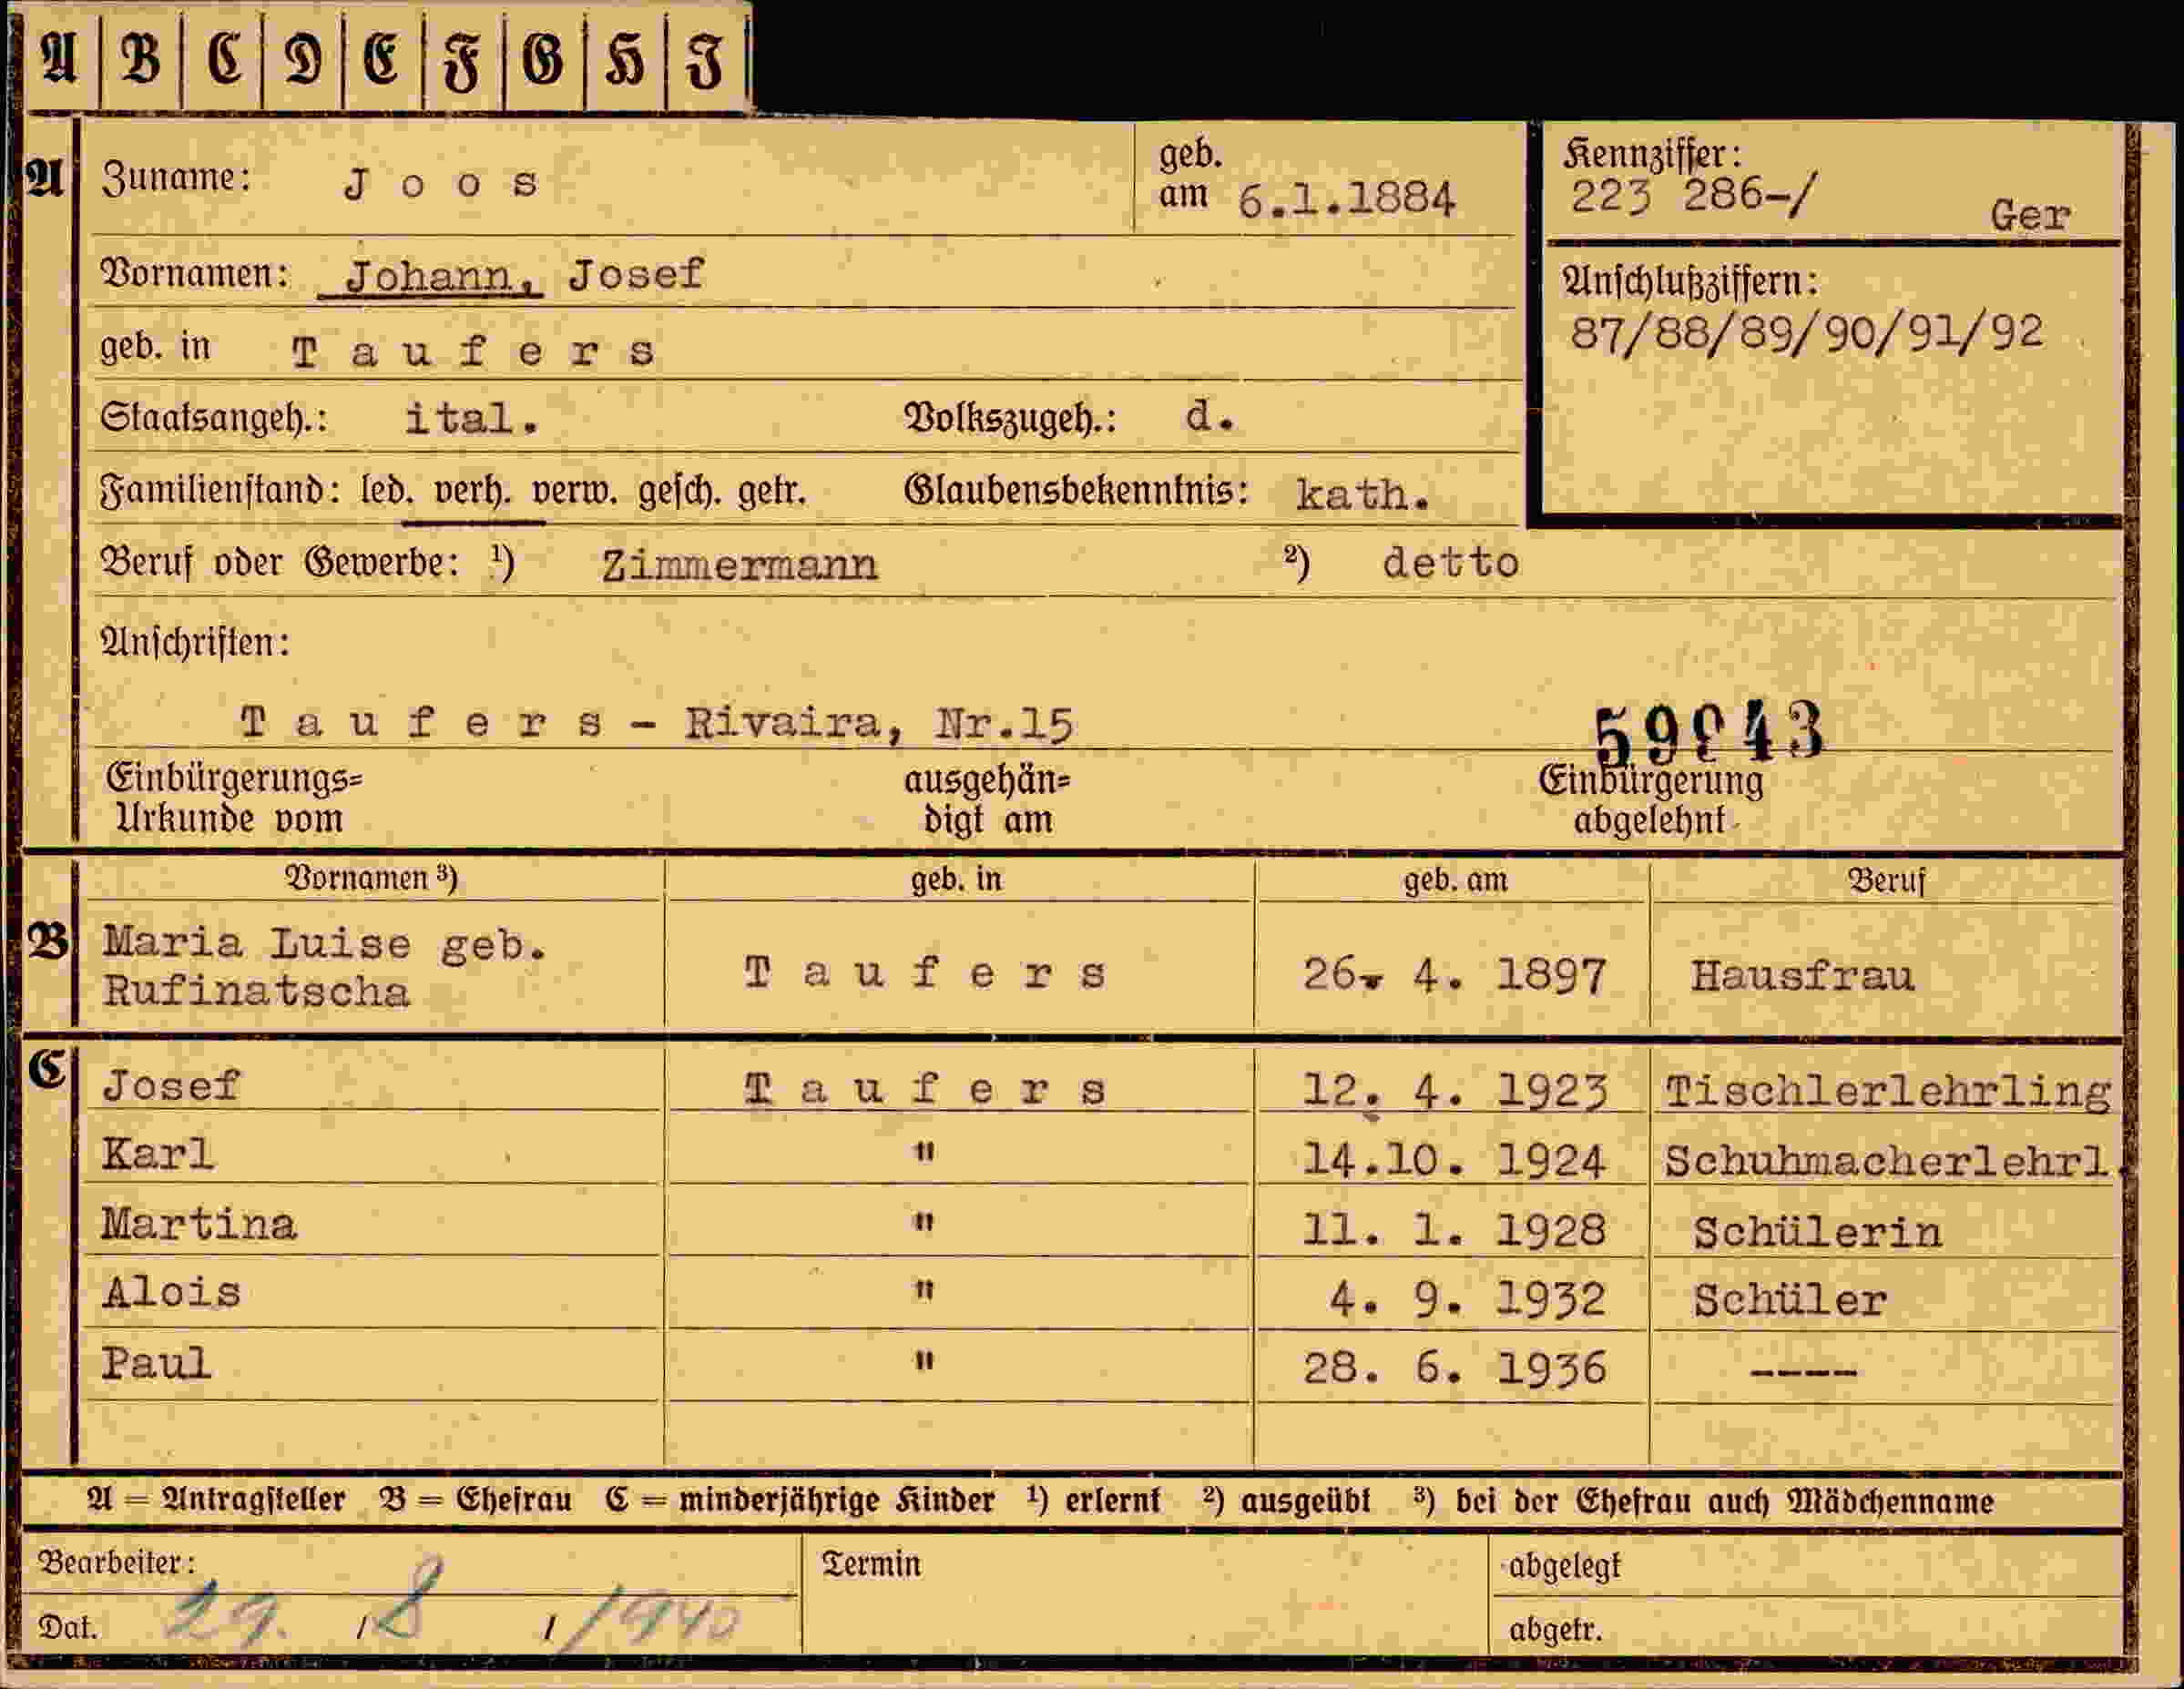 A B C D E F G H I
A Zuname: J o o s geb. am 6.1.1884 Kennziffer: 223 286-/ Ger
Vornamen: Johann, Josef Anschlußziffern:
geb. in T a u f e r s 87/88/89/90/91/92
Staatsangeh.: ital. Volkszugeh.: d.
Familienstand: led. verh. verw. gesch. getr. Glaubensbekenntnis: kath.
Beruf oder Gewerbe: ¹) Zimmermann ²) detto
Anschriften:
T a u f e r s - Rivaira, Nr.15
Einbürgerungs= ausgehän= Einbürgerung
Urkunde vom digt am abgelehnt
Vornamen ³) geb. in geb. am Beruf
B Maria Luise geb.
Rufinatscha T a u f e r s 26. 4. 1897 Hausfrau
C Josef T a u f e r s 12. 4. 1923 Tischlerlehrling
Karl " 14.10. 1924 Schuhmacherlehrl.
Martina " 11. 1. 1928 Schülerin
Alois " 4. 9. 1932 Schüler
Paul " 28. 6. 1936 ----
A = Antragsteller B = Ehefrau C = minderjährige Kinder ¹) erlernt ²) ausgeübt ³) bei der Ehefrau auch Mädchenname
Bearbeiter: Termin abgelegt
Dat. 29. / 8 / 1940 abgetr.